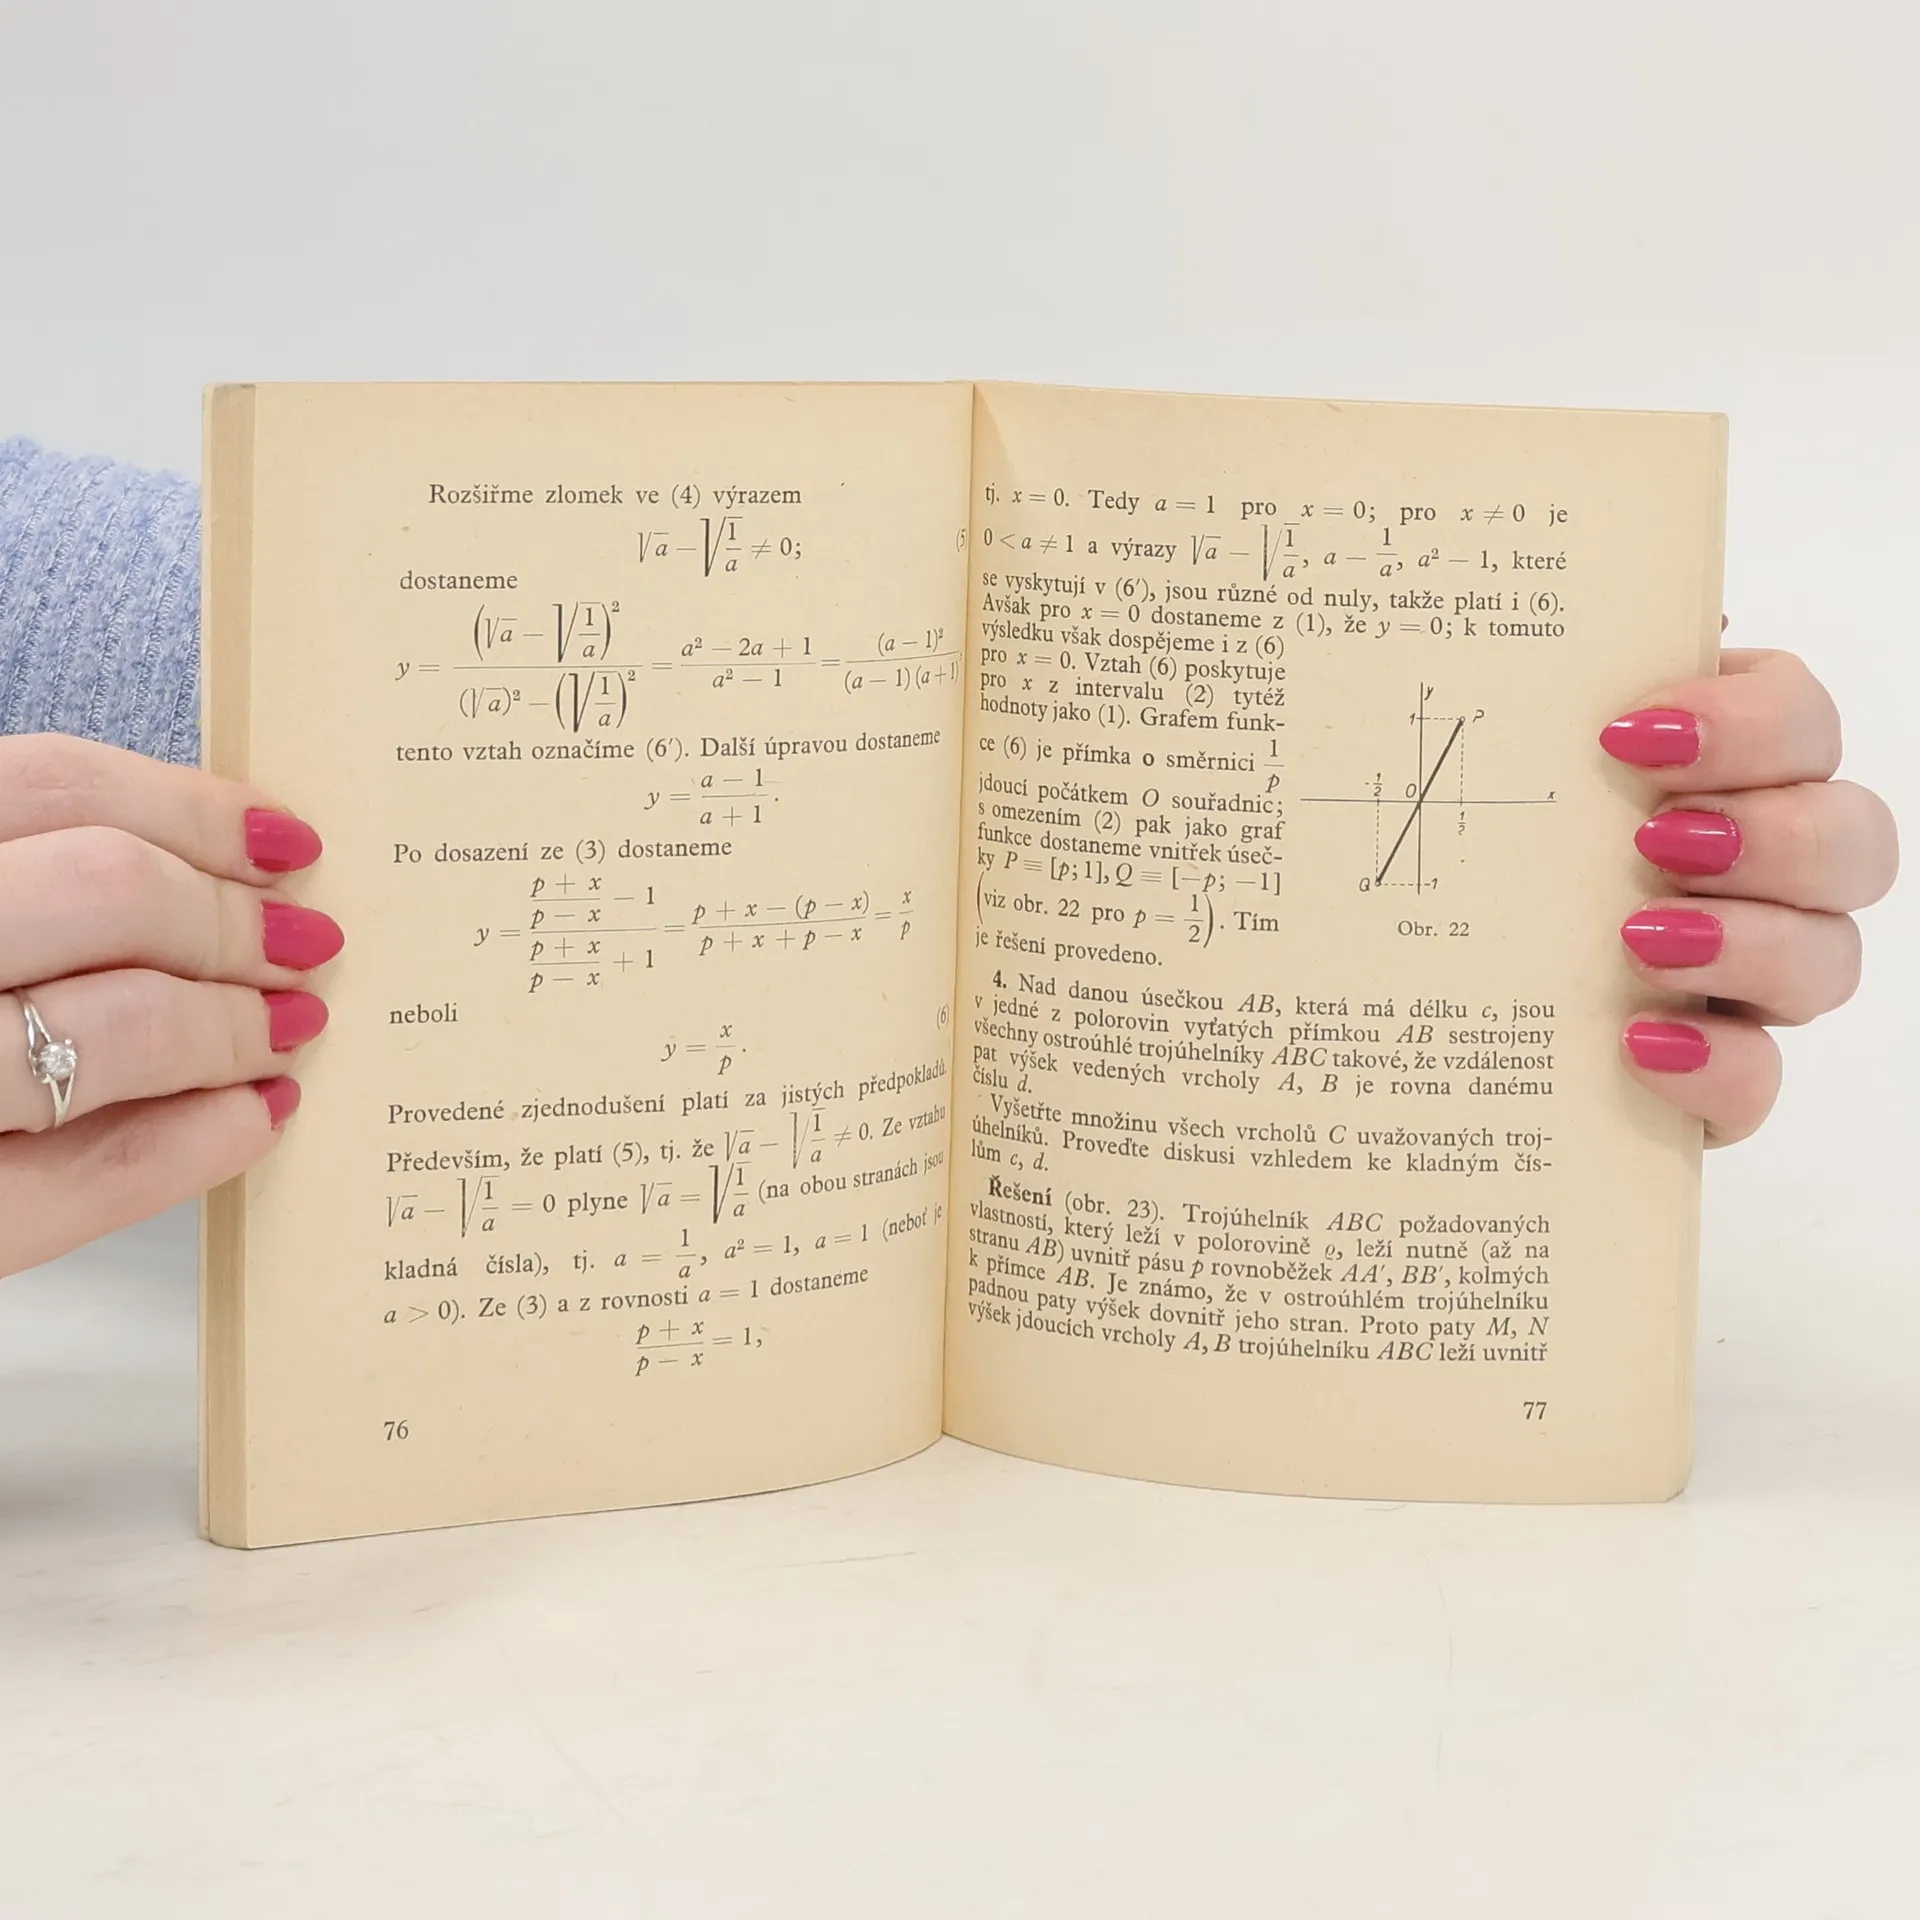 Rozšiřme zlomek ve (4) výrazem
√a − √(1/a) ≠ 0; (5)
dostaneme
y = (√a − √(1/a))² / ((√a)² − (√(1/a))²) = (a² − 2a + 1)/(a² − 1) = (a − 1)²/((a − 1)(a + 1));
tento vztah označíme (6′). Další úpravou dostaneme
y = (a − 1)/(a + 1).
Po dosazení ze (3) dostaneme
y = ((p + x)/(p − x) − 1)/((p + x)/(p − x) + 1) = (p + x − (p − x))/(p + x + p − x) = x/p
neboli
y = x/p. (6)
Provedené zjednodušení platí za jistých předpokladů.
Především, že platí (5), tj. že √a − √(1/a) ≠ 0. Ze vztahu
√a − √(1/a) = 0 plyne √a = √(1/a) (na obou stranách jsou
kladná čísla), tj. a = 1/a, a² = 1, a = 1 (neboť je
a > 0). Ze (3) a z rovnosti a = 1 dostaneme
(p + x)/(p − x) = 1,
76
tj. x = 0. Tedy a = 1 pro x = 0; pro x ≠ 0 je
0 < a ≠ 1 a výrazy √a − √(1/a), a − 1/a, a² − 1, které
se vyskytují v (6′), jsou různé od nuly, takže platí i (6).
Avšak pro x = 0 dostaneme z (1), že y = 0; k tomuto
výsledku však dospějeme i z (6)
pro x = 0. Vztah (6) poskytuje
pro x z intervalu (2) tytéž
hodnoty jako (1). Grafem funk-
ce (6) je přímka o směrnici 1/p
jdoucí počátkem O souřadnic;
s omezením (2) pak jako graf
funkce dostaneme vnitřek úseč-
ky P ≡ [p; 1], Q ≡ [−p; −1]
(viz obr. 22 pro p = 1/2). Tím
je řešení provedeno.
y
1 P
-1/2 0 x
1/2
Q -1
Obr. 22
4. Nad danou úsečkou AB, která má délku c, jsou
v jedné z polorovin vyťatých přímkou AB sestrojeny
všechny ostroúhlé trojúhelníky ABC takové, že vzdálenost
pat výšek vedených vrcholy A, B je rovna danému
číslu d.
Vyšetřte množinu všech vrcholů C uvažovaných troj-
úhelníků. Proveďte diskusi vzhledem ke kladným čís-
lům c, d.
Řešení (obr. 23). Trojúhelník ABC požadovaných
vlastností, který leží v polorovině ϱ, leží nutně (až na
stranu AB) uvnitř pásu p rovnoběžek AA′, BB′, kolmých
k přímce AB. Je známo, že v ostroúhlém trojúhelníku
padnou paty výšek dovnitř jeho stran. Proto paty M, N
výšek jdoucích vrcholy A, B trojúhelníku ABC leží uvnitř
77